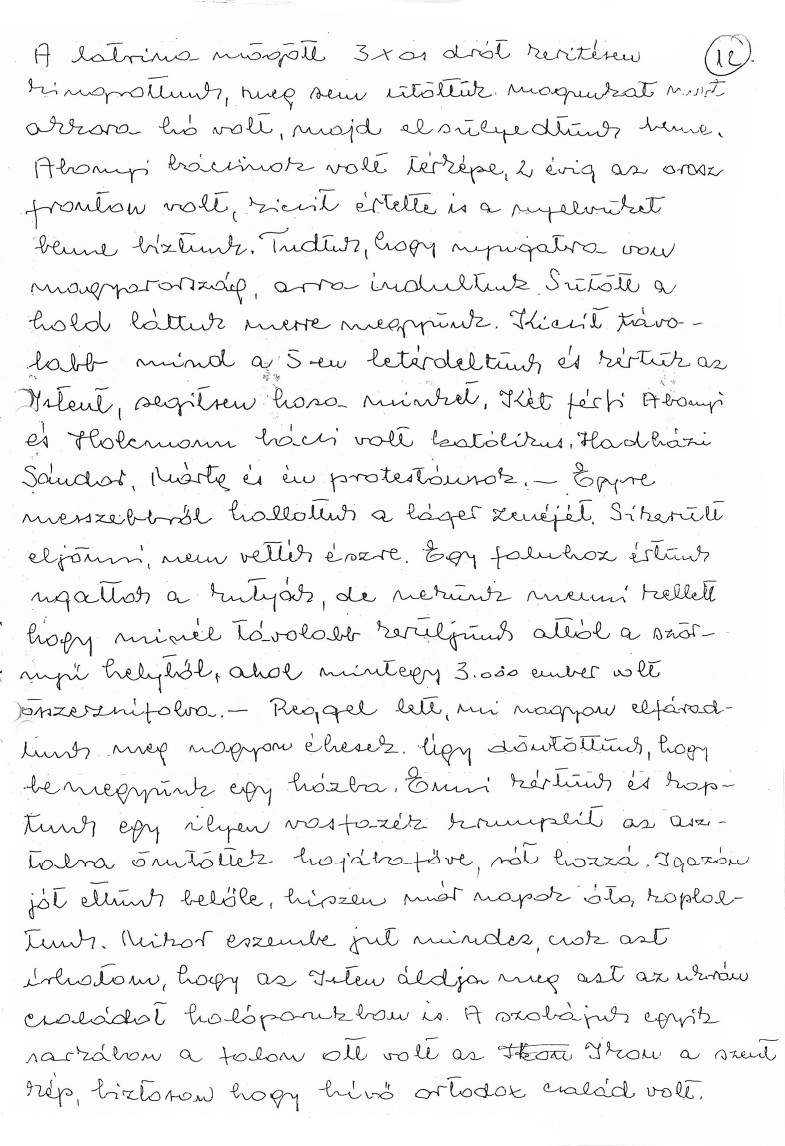 A latrina mögött 3x os drót keritésen 12.
kiugrottunk, meg sem ütöttük magunkat mert
akkora hó volt, majd elsülyedtünk benne.
Abonyi bácsinak volt térképe, 2 évig az orosz
fronton volt, kicsit értette is a nyelvüket
benne biztunk. Tudtuk, hogy nyugatra van
magyarország, arra indultunk. Sütött a
hold láttuk merre megyünk. Kicsit távo-
labb mind a 5-en letérdeltünk és kértük az
Istent, segitsen haza minket. Két férfi Abonyi
és Holcmann bácsi volt katólikus. Hadházi
Sándor, Márta és én protestánsok. — Egyre
messzebbről hallottuk a láger zenéjét. Sikerült
eljönni, nem vették észre. Egy faluhoz értünk
ugattak a kutyák, de nekünk menni kellett
hogy minél távolabb kerüljünk attól a ször-
nyü helytől, ahol mintegy 3.000 ember volt
összeszüfolva. — Reggel lett, mi nagyon elfárad-
tunk meg nagyon éhesek. Úgy döntöttünk, hogy
bemegyünk egy házba. Enni kértünk és kap-
tunk egy ilyen vasfazék krumplit az asz-
talra öntötték hajábafőve, sót hozzá. Igazán
jót ettünk belőle, hiszen már napok óta koplal-
tunk. Mikor eszembe jut mindez, csak azt
irhatom, hogy az Isten áldja meg azt az ukrán
családot halóporukban is. A szobájuk egyik
sarkában a falon ott volt az Ikon a szent
kép, biztosan hogy hivő ortodox család volt.